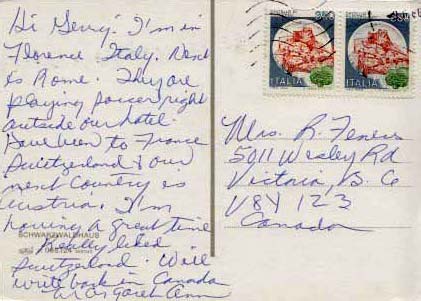 Hi Gerry! I'm in
Florence Italy. Next
is Rome. They are
playing soccer right
outside our hotel.
Have been to France
Switzerland & our
next Country is
Austria. I'm
having a great time
SCHWARZWALDHAUS
Really liked
Switzerland. Will
write back in Canada
Ann
ITALIA
ITALIA
Mrs. R.
5011 Wesley Rd
Victoria, B.C
V8Y 1Z3
Canada